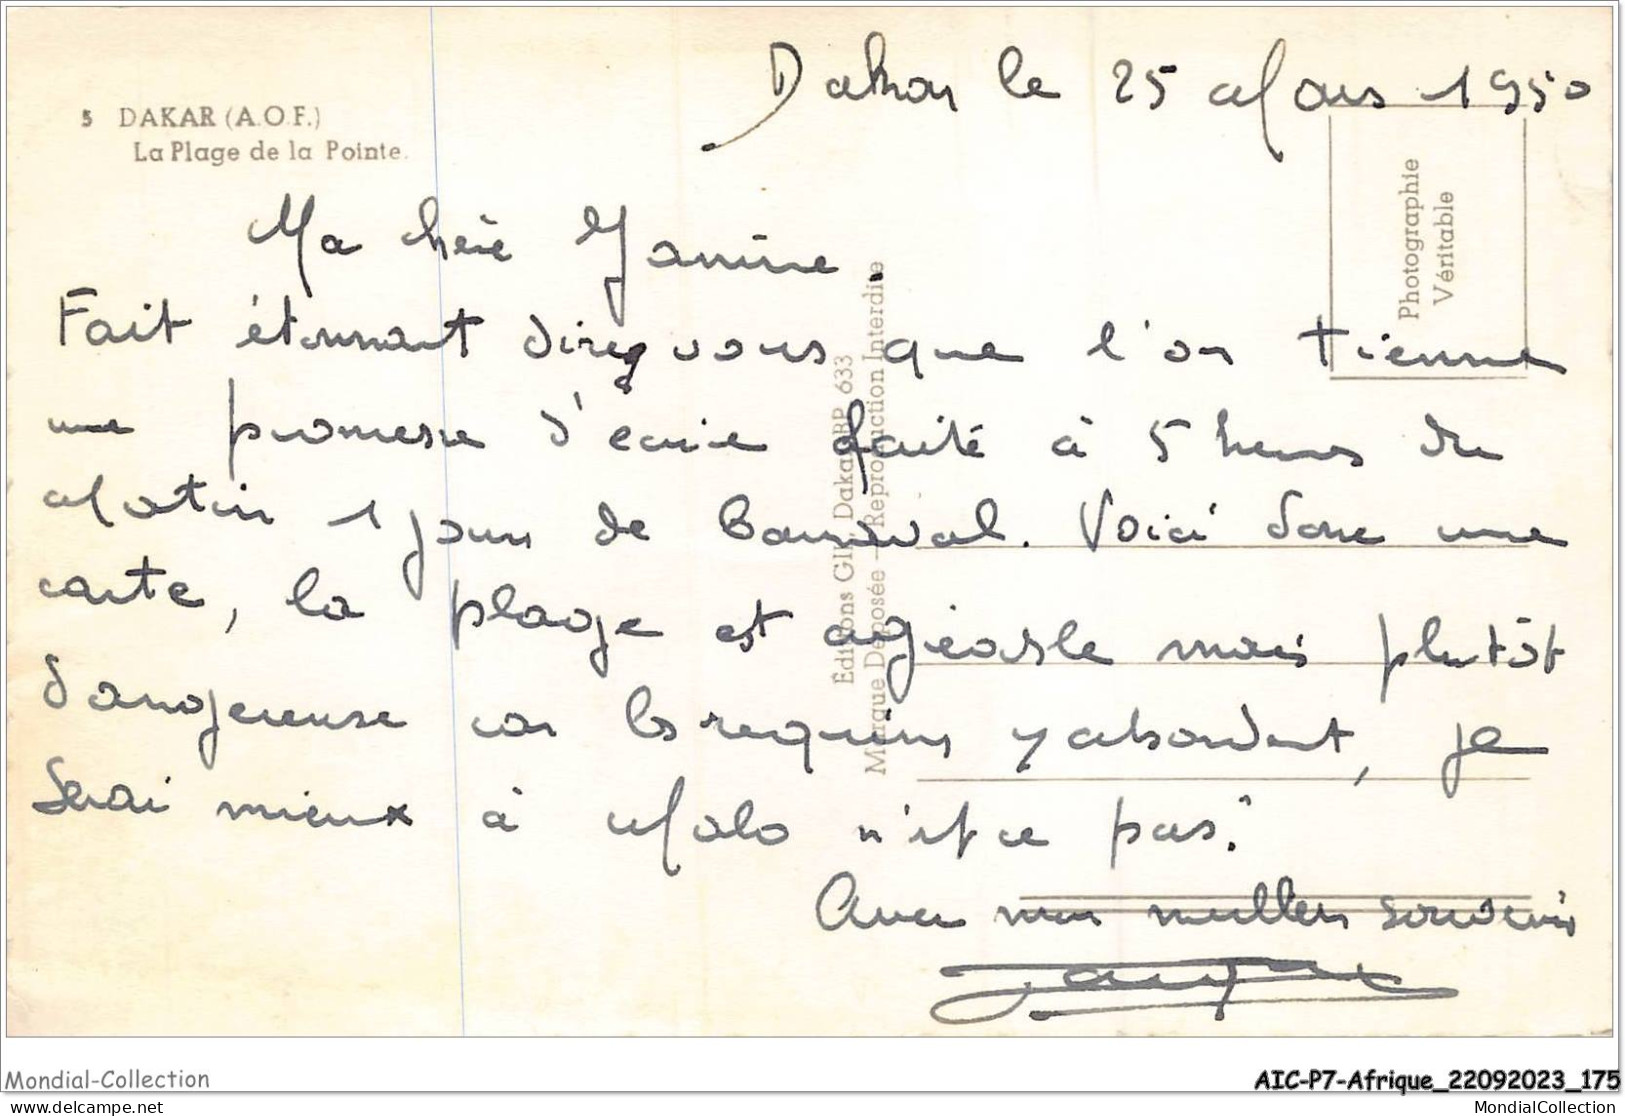 Dakar le 25 Mars 1950
5 DAKAR (A.O.F.)
La Plage de la Pointe.
Photographie
Véritable
Ma chère Janine.
Fait étonnant direz vous que l'on tienne
une promesse d'écrire faite à 5 heures du
Matin 1 jour de Carnaval. Voici donc une
carte, la plage est agréable mais plutôt
dangereuse car les requins y abondent, je
serai mieux à Malo n'est ce pas?
Avec mes meilleurs souvenirs
Editions GIL Dakar BP 633
Marque Déposée - Reproduction Interdite
Mondial-Collection
AIC-P7-Afrique_22092023_175
delcampe.net
MondialCollection